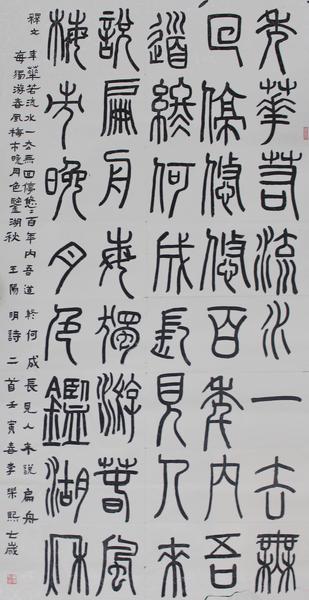 年華若流水一去無
回停悠悠百年内吾
道終何成長見人來
說扁舟每獨游春風
梅市晚月色鑑湖秋
釋文 年華若流水一去無回停悠〻百年内吾道終何成長見人来說扁舟
每獨游春風梅市晚月色鑒湖秋 王陽明詩二首壬寅喜李榮熙七十歲